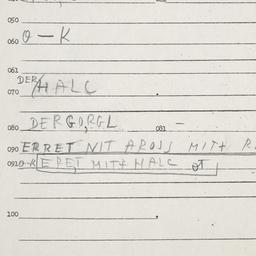 050
060 O — K
061
DER/HALC
070
080 DERGO,RGL 081 —
090 ERRET NIT AROSS MITH R
091 O-K ERET MITH HALC OT
100